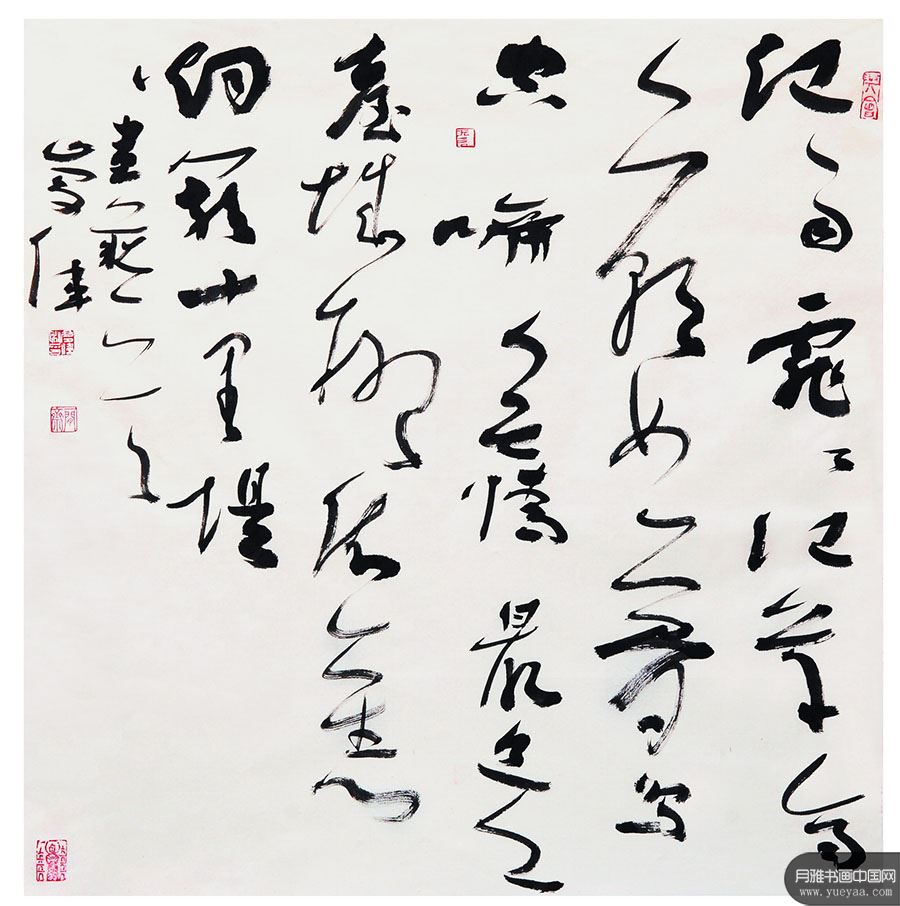 江雨霏〻江草齊
六朝如夢鳥
空啼無情最是
臺城柳依舊
烟籠十里堤
月雅书画中国网
www.yueyaa.com